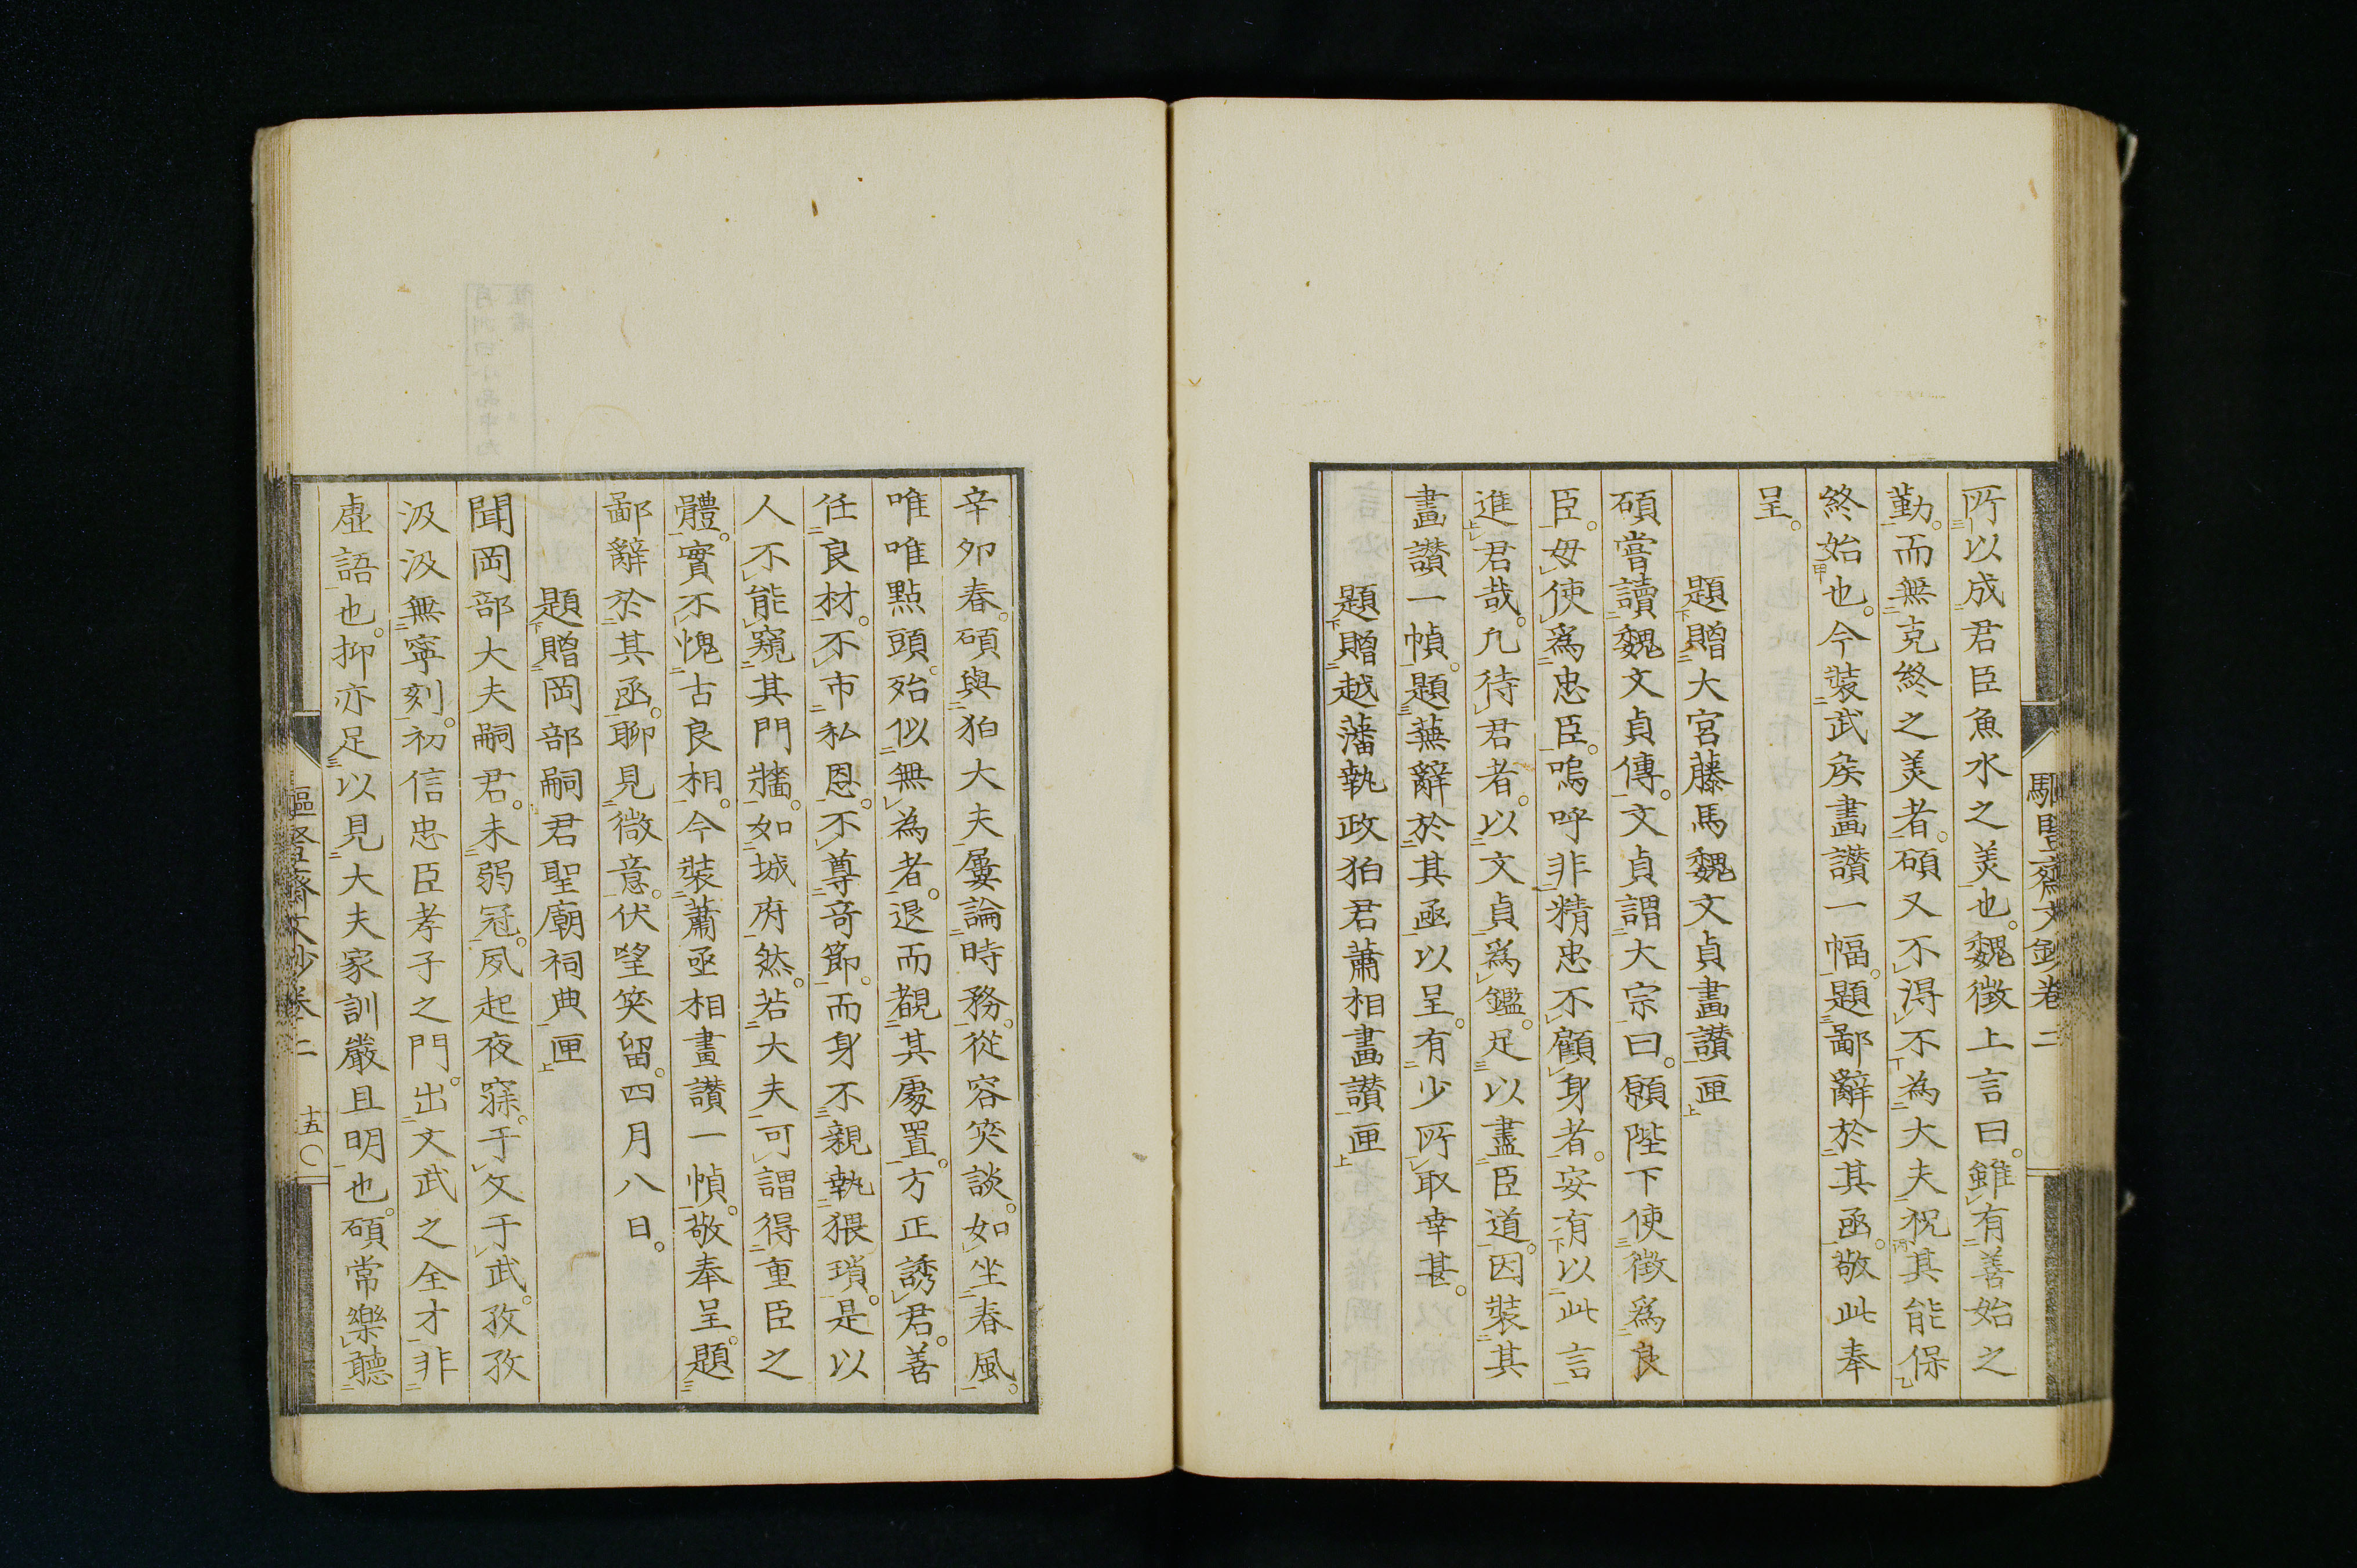 所以成君臣魚水之美也。魏徴上言曰。雖有善始之
勤。而無克終之美者。碩又不得不為大夫祝其能保
終始也。今裝武矦畫讃一幅。題鄙辭於其函。敬此奉
呈。
題贈大宮藤馬魏文貞畫讃匣
碩嘗讀魏文貞傳。文貞謂大宗曰。願陛下使徴爲良
臣。毋使爲忠臣。嗚呼非精忠不顧身者。安有以此言
進君哉。凡待君者。以文貞爲鑑。足以盡臣道。因裝其
畫讃一幀。題蕪辭於其函以呈。有少所取幸甚。
題贈越藩執政狛君蕭相畫讃匣
辛夘春。碩與狛大夫屢論時務。從容笑談。如坐春風。
唯唯點頭。殆似無為者。退而覩其處置。方正誘君。善
任良材。不市私恩。不尊奇節。而身不親執猥瑣。是以
人不能窺其門牆。如城府然。若大夫可謂得重臣之
體。實不愧古良相。今裝蕭丞相畫讃一幀。敬奉呈。題
鄙辭於其函。聊見微意。伏望笑留。四月八日。
題贈岡部嗣君聖廟祠典匣
聞岡部大夫嗣君。未弱冠。夙起夜寐。于文于武。孜孜
汲汲無寧刻。初信忠臣孝子之門。出文武之全才。非
虚語也。抑亦足以見大夫家訓嚴且明也。碩常樂聽
文鈔卷二
十五